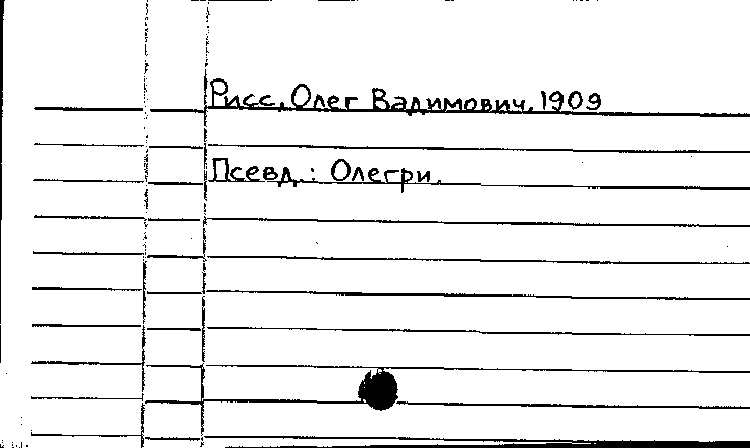 Рисс, Олег Вадимович, 1909
Псевд.: Олегри.